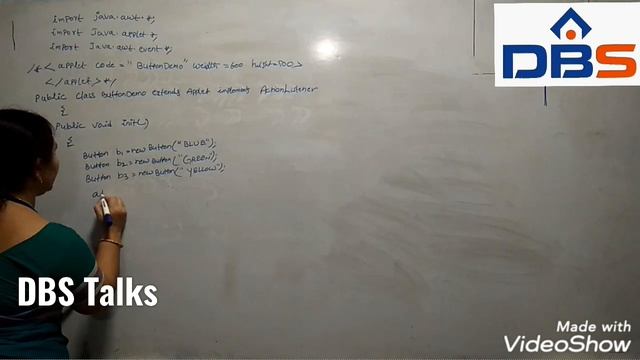 import java.awt.*;
import java.applet.*;
import Java.awt.event.*;
/*< applet code = "ButtonDemo" width=600 height=500>
</applet>*/
Public class ButtonDemo extends Applet implements ActionListener
{
Public void init()
{
Button b1=new Button("BLUE");
Button b2=new Button("GREEN");
Button b3=new Button("YELLOW");
ad
DBS
DBS Talks
Made with
VideoShow